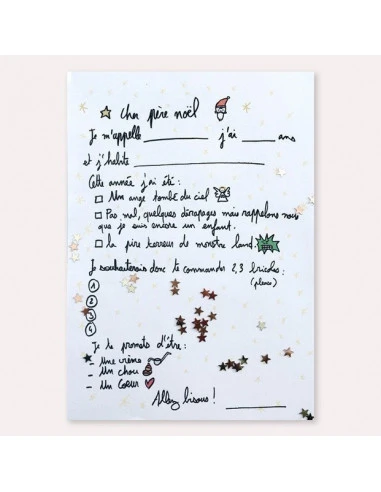 cher père noël
Je m'appelle ________ j'ai ____ ans
et j'habite ________________
Cette année j'ai été :
□ Un ange tombé du ciel
□ Pas mal, quelques dérapages mais rappelons nous
que je suis encore un enfant.
□ la pire terreur de monstre land.
Je souhaiterais donc te commander 2,3 bricoles :
(please)
1
2
3
4
Je te promets d'être :
- Une crème
- Un chou
- Un Cœur
Allez bisous ! ________